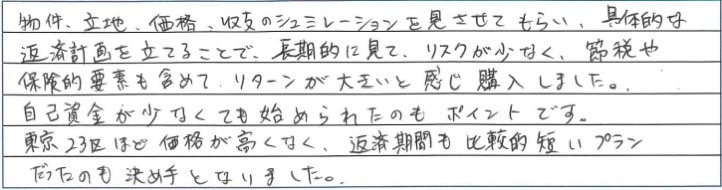 物件、立地、価格、収支のシュミレーションを見させてもらい、具体的な
返済計画を立てることで、長期的に見て、リスクが少なく、節税や
保険的要素も含めて、リターンが大きいと感じ購入しました。
自己資金が少なくても始められたのもポイントです。
東京23区ほど価格が高くなく、返済期間も比較的短いプラン
だったのも決め手となりました。